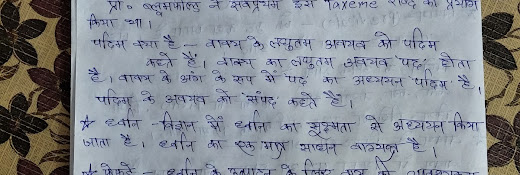 प्रो० ब्लूमफील्ड ने सर्वप्रथम इस Taxeme शब्द का प्रयोग
किया था।
पदिम क्या है - वाक्य के लघुतम अवयव को पदिम
कहते हैं। वाक्य का लघुतम अवयव 'पद' होता
है। वाक्य के अंग के रूप में पद का अध्ययन पदिम है।
पदिम के अवयव को 'संपद' कहते हैं।
* ध्वनि - विज्ञान में ध्वनि का सूक्ष्मता से अध्ययन किया
जाता है। ध्वनि का एक मात्र साधन वाग्यन्त्र है।
ध्वनि के उत्पादन के लिए